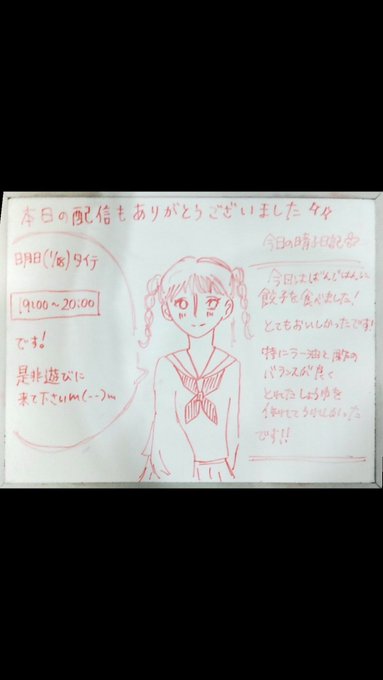 本日の配信もありがとうございました
明日(1/18)タイテ
19:00〜20:00
です!
是非遊びに
来て下さいm(--)m
今日の晴子日記
今日はばんごはんに
餃子を食べました!
とてもおいしかったです!
特にラー油と酢の
バランスが良く
とれたしょうゆを
作れてうれしかった
です!!